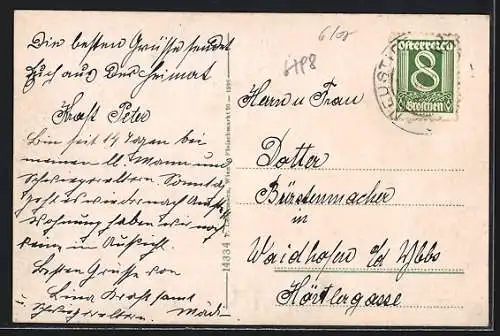 Die besten Grüsse sendet
Euch aus der Heimat
Kraft Peter
Bin seit 14 Tagen bei
meinen ll. Mann und
Schwiegereltern. Sonntag
geht es wieder nach
Wohnung haben wir noch
keine in Aussicht.
Besten Grüsse von
Lina Kraft samt
Schwiegereltern.
14334
Wien, Fleischmarkt
6118
Österreich
8
Groschen
NEUST
Herrn u Frau
Dotter
Bürstenmacher
in
Waidhofen a/d Ybbs
Hörtlergasse